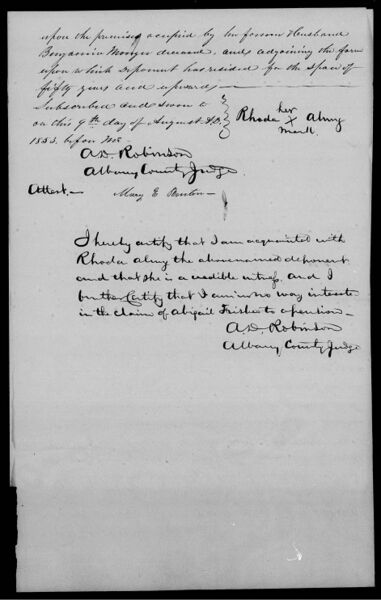 upon the premises occupied by her former Husband
Benjamin Monger deceased, and adjoining the farm
upon which Deponent has resided for the space of
fifty years and upwards—
Subscribed and sworn to
on this 9th day of August AD.
1853. before me
Rhoda her X mark Almy
A.D. Robinson
Albany County Judge
Attest.— Mary E
I hereby certify that I am acquainted with
Rhoda Almy the above named deponent
and that she is a credible witness, and I
further Certify that I am in no way interested
in the claim of Abigail to a pension—
A.D. Robinson
Albany County Judge